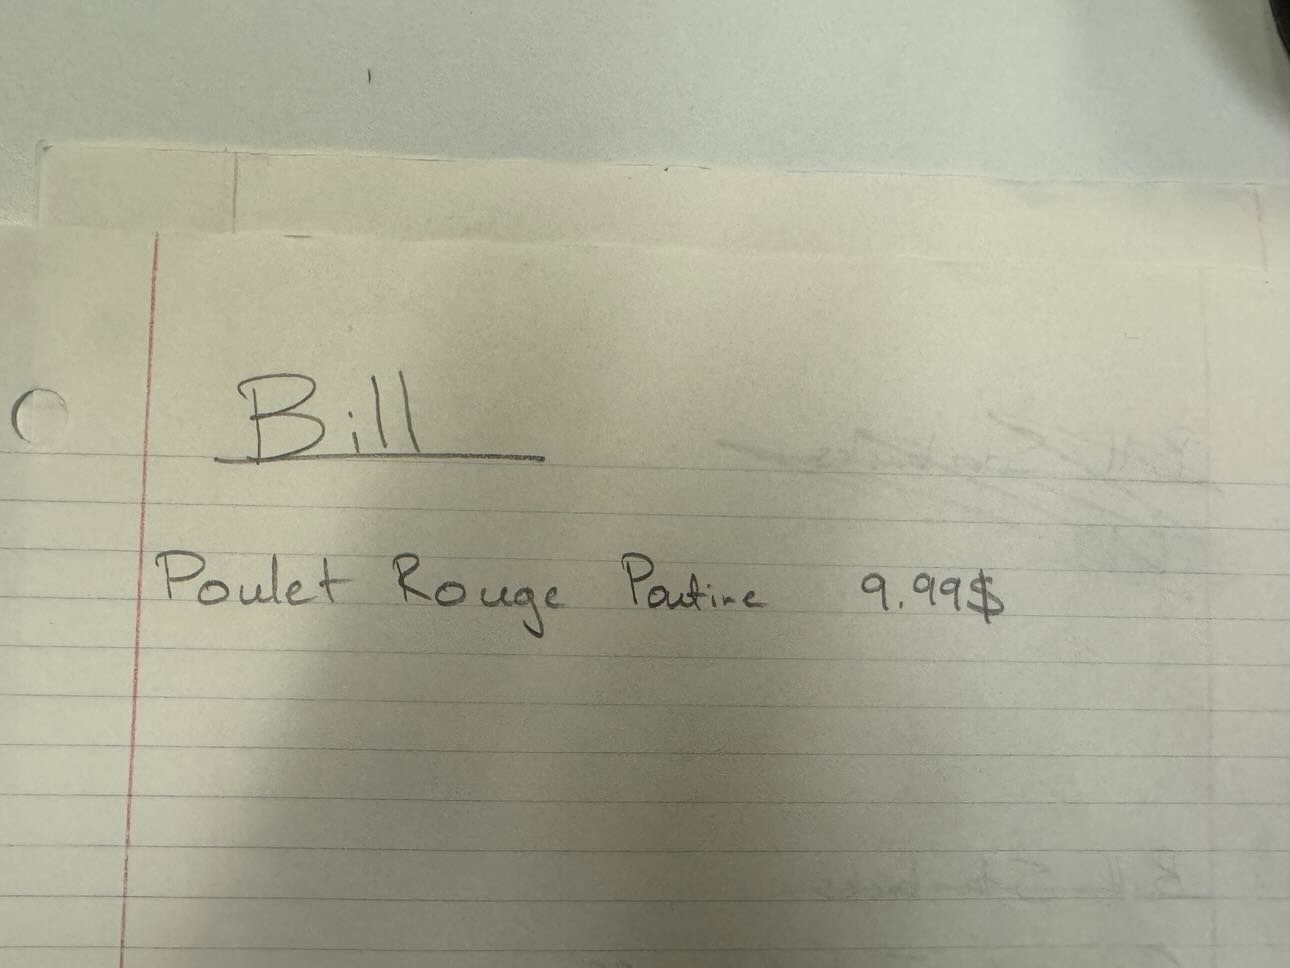 Bill
Poulet Rouge Poutine 9.99$